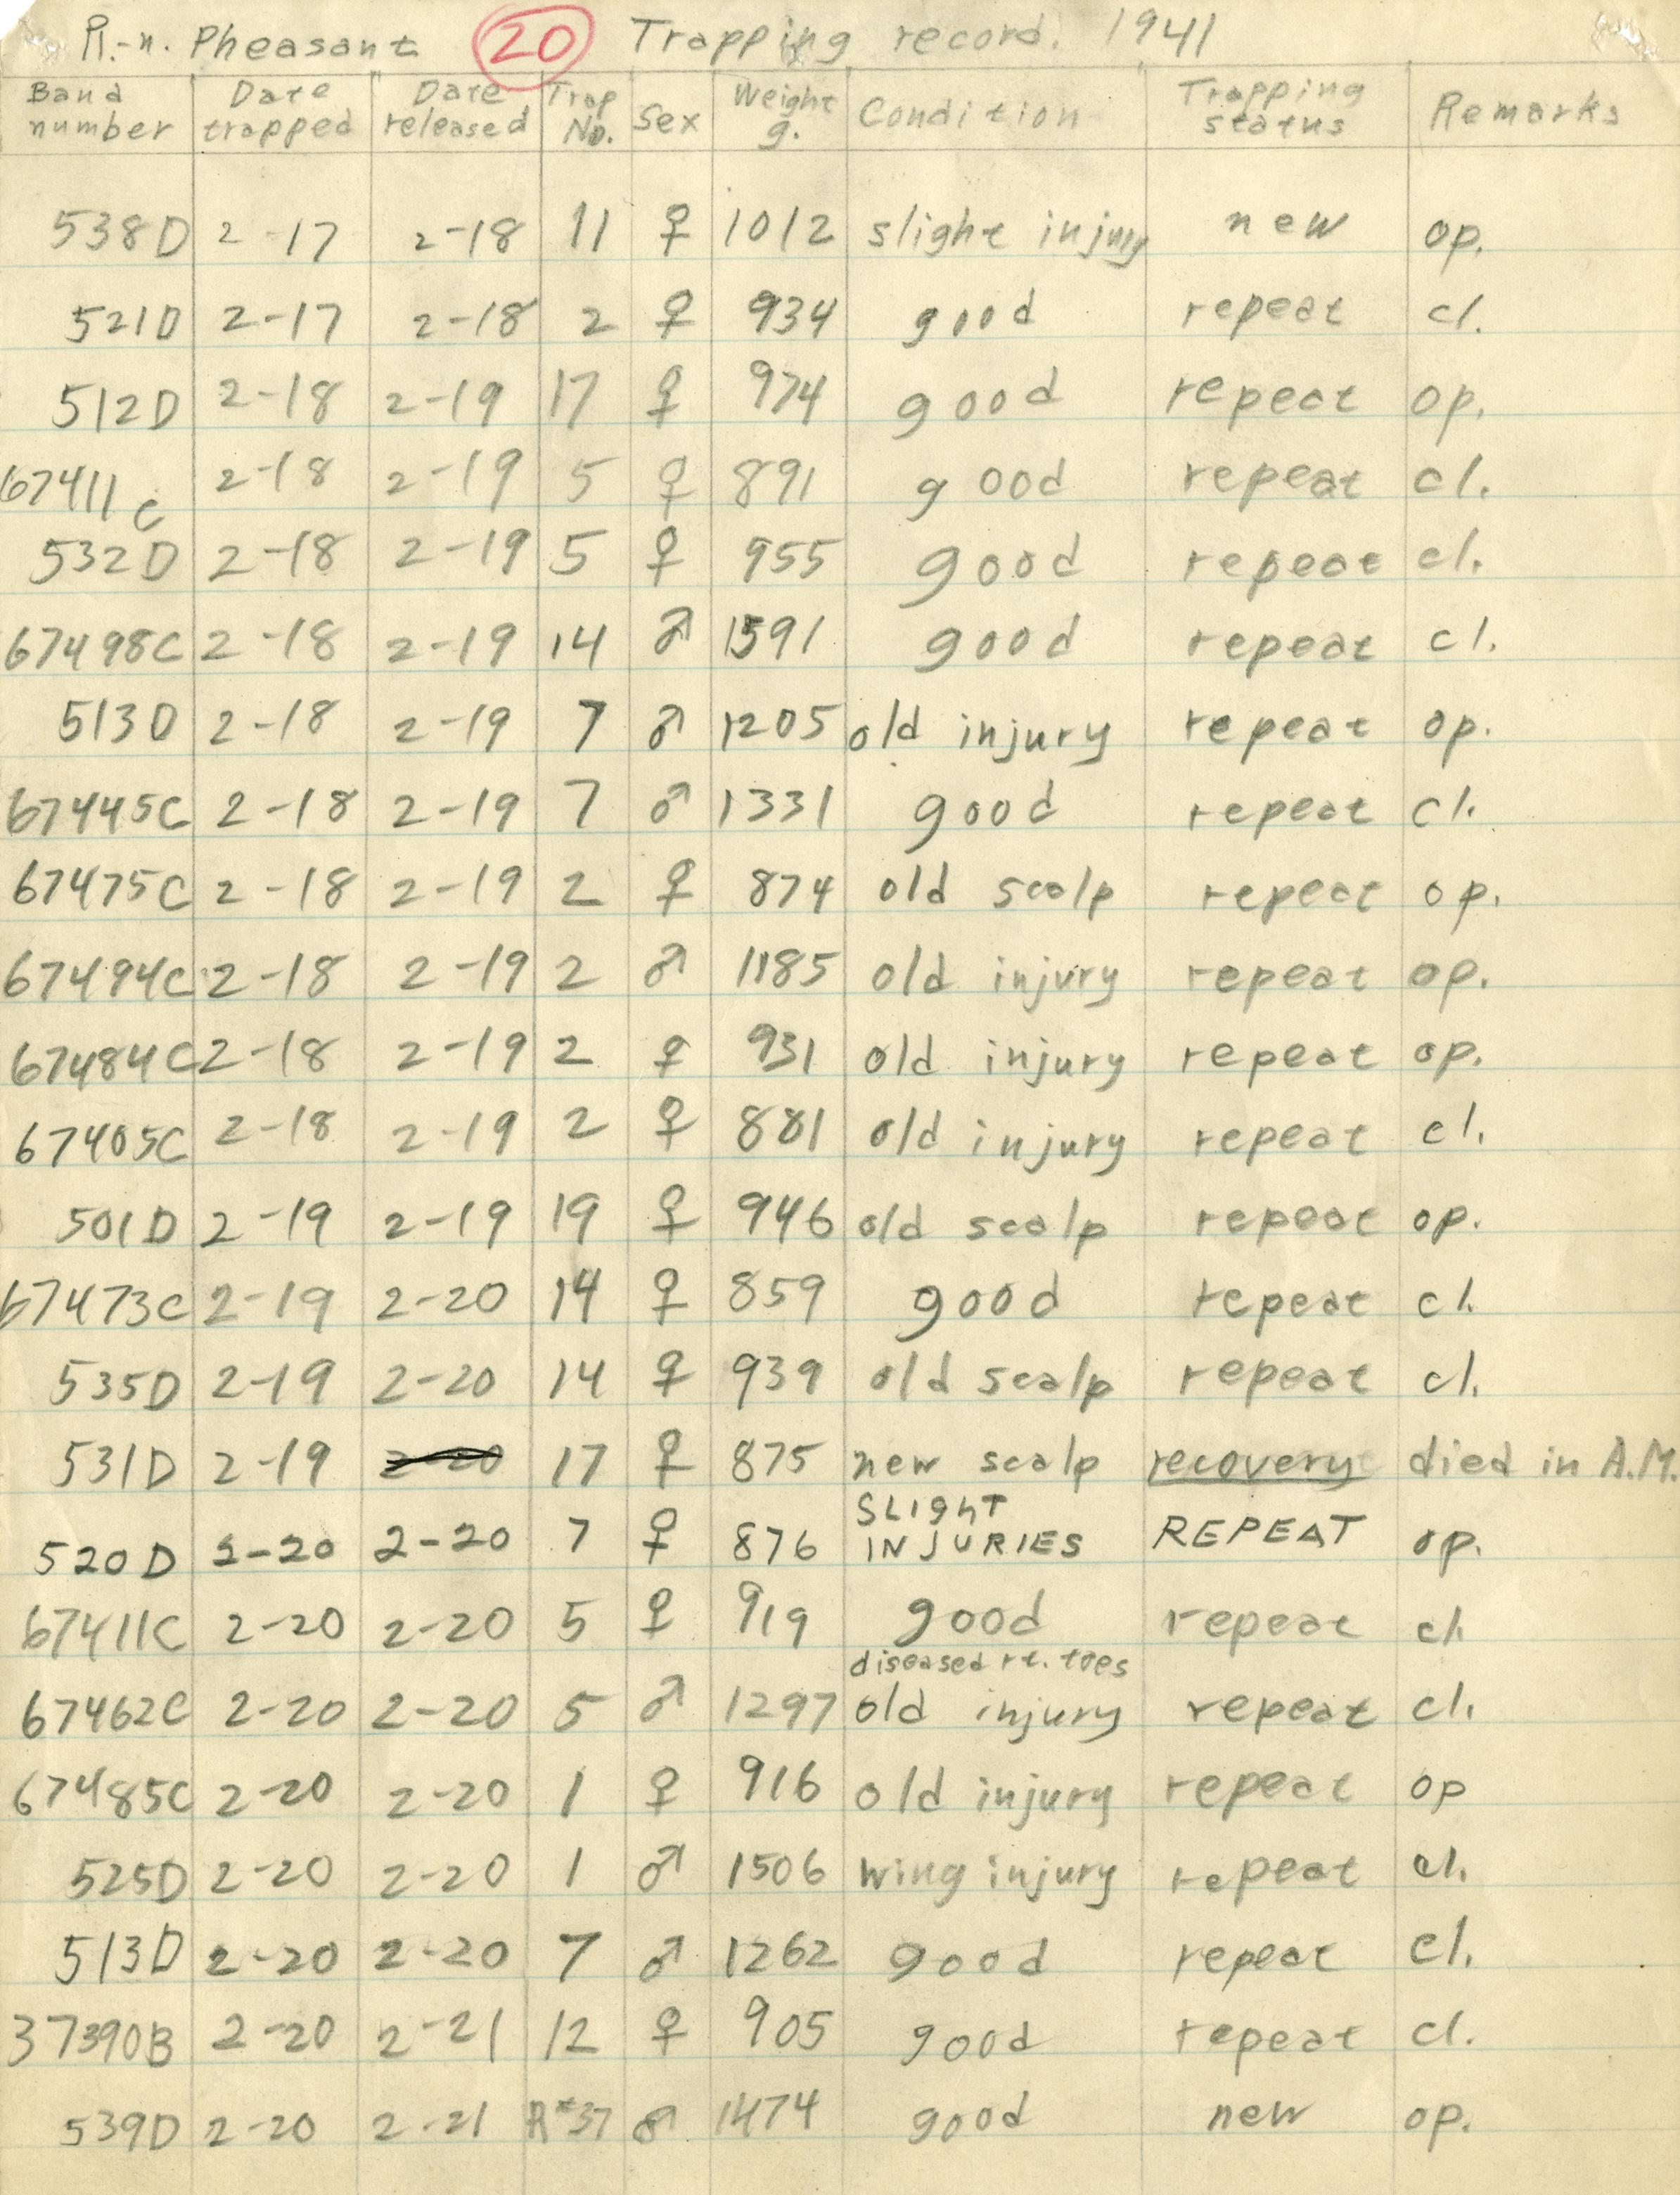 R.-n. Pheasant 20 Trapping record. 1941
Band number Date trapped Date released Trap No. Sex Weight g. Condition Trapping status Remarks
538D 2-17 2-18 11 ♀ 1012 slight injury new op.
521D 2-17 2-18 2 ♀ 934 good repeat cl.
512D 2-18 2-19 17 ♀ 974 good repeat op.
67411C 2-18 2-19 5 ♀ 891 good repeat cl.
532D 2-18 2-19 5 ♀ 955 good repeat cl.
67498C 2-18 2-19 14 ♂ 1591 good repeat cl.
513D 2-18 2-19 7 ♂ 1205 old injury repeat op.
67445C 2-18 2-19 7 ♂ 1331 good repeat cl.
67475C 2-18 2-19 2 ♀ 874 old scalp repeat op.
67494C 2-18 2-19 2 ♂ 1185 old injury repeat op.
67484C 2-18 2-19 2 ♀ 931 old injury repeat op.
67405C 2-18 2-19 2 ♀ 881 old injury repeat cl.
501D 2-19 2-19 19 ♀ 946 old scalp repeat op.
67473C 2-19 2-20 14 ♀ 859 good repeat cl.
535D 2-19 2-20 14 ♀ 939 old scalp repeat cl.
531D 2-19 2-20 17 ♀ 875 new scalp recovery died in A.M.
520D 2-20 2-20 7 ♀ 876 SLIGHT INJURIES REPEAT op.
67411C 2-20 2-20 5 ♀ 919 good repeat cl.
67462C 2-20 2-20 5 ♂ 1297 diseased rt. toes old injury repeat cl.
67485C 2-20 2-20 1 ♀ 916 old injury repeat op
525D 2-20 2-20 1 ♂ 1506 wing injury repeat cl.
513D 2-20 2-20 7 ♂ 1262 good repeat cl.
37390B 2-20 2-21 12 ♀ 905 good repeat cl.
539D 2-20 2-21 R#37 ♂ 1474 good new op.